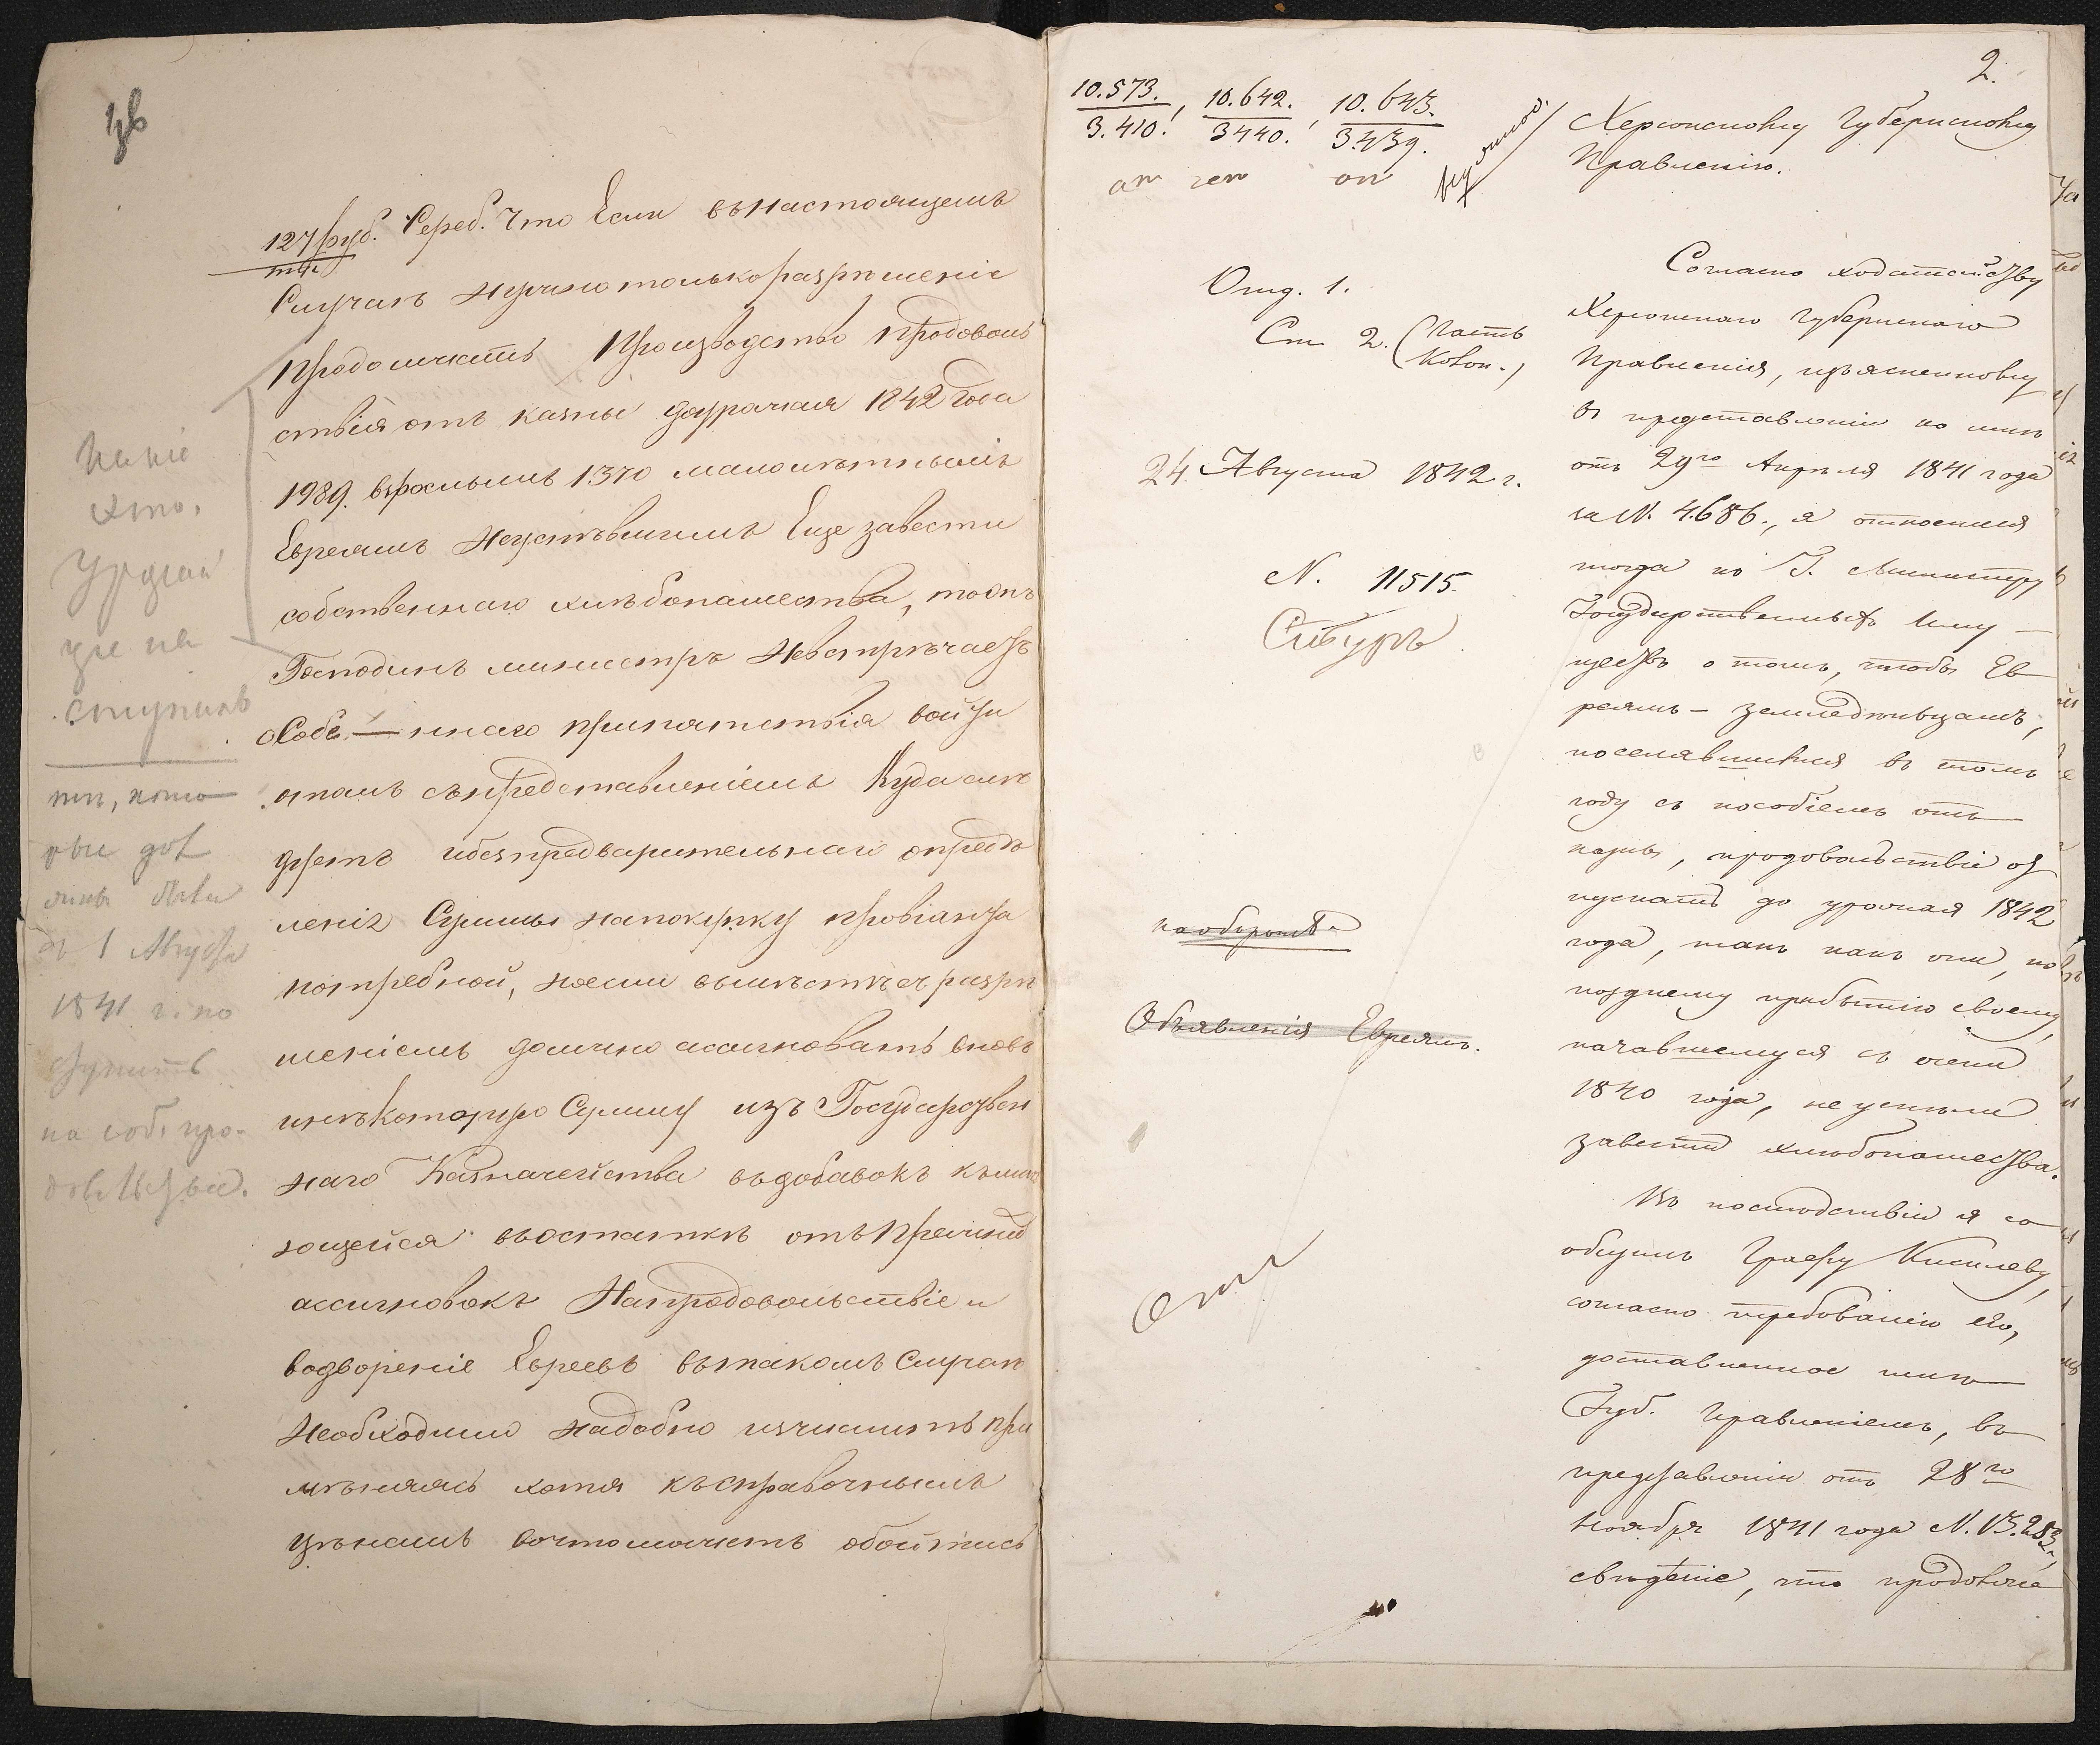 127 руб. Сереб. Что Если въ настоящемъ
Случаѣ нужно только разрѣшеніе
продолжать производство продоволь
ствія отъ казны до урожая 1842 года
1989. взрослымъ 1370 малолѣтнымъ
Евреямъ неуспѣвшимъ Еще завести
собственнаго хлѣбопашества, то онъ
Господинъ министръ невстрѣчаетъ
особе — ннаго препятствія войти
о томъ съ представленіемъ Куда слѣ
дуетъ и безъ предварительнаго опредѣ
ленія Суммы на покупку провіанта
потребной, но если вмѣстѣ съ разрѣ
шеніемъ должно ассигновать вновь
нѣкоторую Сумму изъ Государствен
наго Казначейства въ добавокъ къ имѣ
ющейся въ остаткѣ отъ прежнихъ
ассигновокъ На продовольствіе и
водвореніе Евреевъ въ такомъ Случаѣ
Необходимо надобно изчислить при
мѣняясь хотя къ справочнымъ
цѣнамъ во что можетъ обойтись
урожай
уже на
ступилъ
тѣ, кото
рые дол
жны были
съ 1 Августа
1841 г. по
ступить
на соб. про-
довольствіе.
2.
10.573. , 10.642. , 10.643.
3.410. 3440. 3.439.
Херсонскому Губернскому
Правленію.
Отд. 1.
Ст. 2. (Часть
Колон.)
24. Августа 1842 г.
N. 11515.
на оборотѣ
Объявленія Евреямъ.
Согласно ходатайству
Херсонскаго Губернскаго
Правленія, изъясненному
въ представленіи ко мнѣ
отъ 29го Апрѣля 1841 года
за N. 4.686., я относился
тогда къ Г. Министру
Государственныхъ Иму —
ществъ о томъ, чтобы Ев
реямъ - земледѣльцамъ,
поселявшимся въ томъ
году съ пособіемъ отъ
казны, продовольствіе от
пускать до урожая 1842
года, такъ какъ они, по
позднему прибытію своему,
начавшемуся съ осени
1840 года, не успѣли
завести хлѣбопашества.
Въ послѣдствіи я со
общилъ Графу Киселеву,
согласно требованію его,
доставленное мнѣ
Губ. Правленіемъ, въ
представленіи отъ 28го
Ноября 1841 года N. 13.283,
свѣденіе, что продоволь